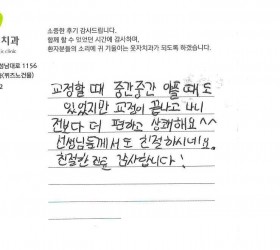 소중한 후기 감사드립니다.
함께 할 수 있었던 시간에 감사하며,
환자분들의 소리에 귀 기울이는 웃자치과가 되도록 하겠습니다.
치과
clinic
성남대로 1156
(위즈노건물)
2
교정할 때 중간중간 아플 때도
있었지만 교정이 끝나고 나니
전보다 더 편하고 상쾌해요^^
선생님들께서도 친절하시네요.
친절한 진료 감사합니다!